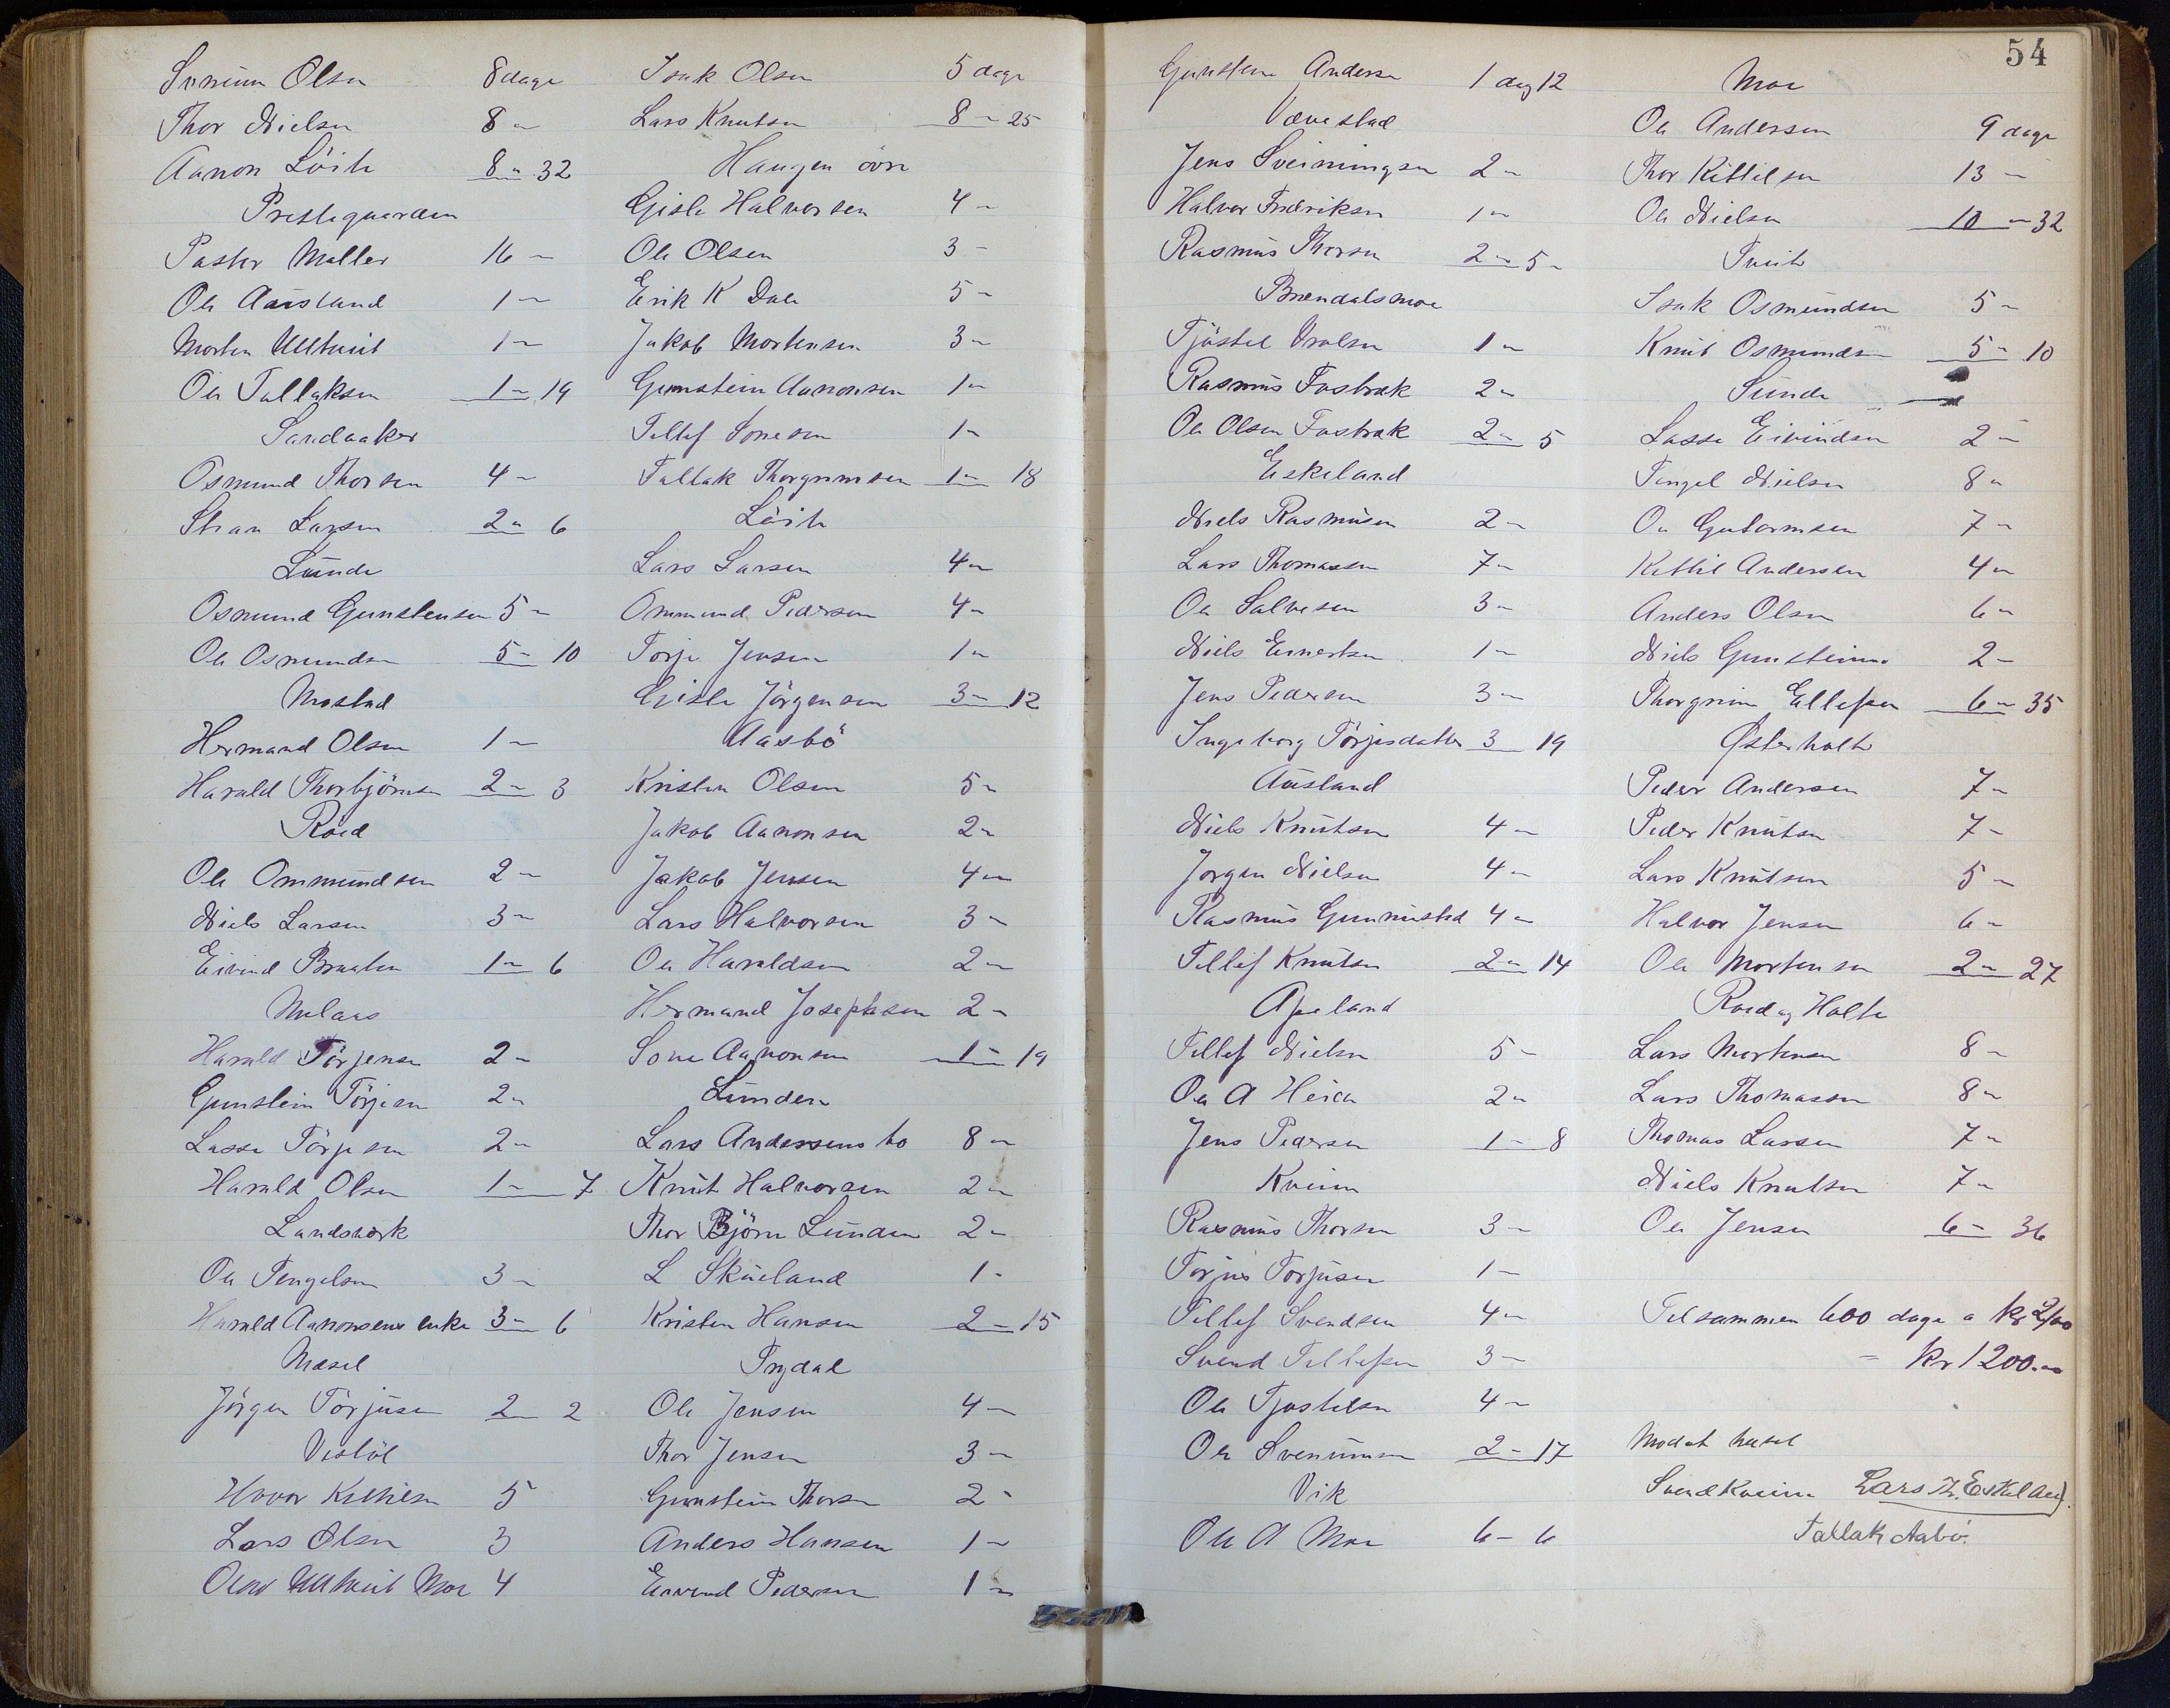 Olsen 8 dage
Thor Nielsen 8 "
Aanon Löite 8 " 32
Prestegaarden
Pastor Møller 16 -
Ole Aasland 1 -
Morten Ulltveit 1 -
Ole Tallaksen 1 - 19
Sandaaker
Osmund Thorsen 4 -
Larsen 2 " 6
Lunde
Osmund Gunstensen 5 -
Ole Osmundsen 5 - 10
Mostad
Hermand Olsen 1 -
Harald Thorbjörnsen 2 - 3
Röed
Ole Ommundsen 2 -
Niels Larsen 3 -
Eivind Braaten 1 - 6
Harald Törjesen 2 -
Gunstein Törjesen 2 -
Lasse Törjesen 2 -
Harald Olsen 1 - 7
Landsverk
Ole Tengelsen 3 -
Harald Aanonsens enke 3 - 6
Mæsel
Jörgen Törjusen 2 2
Vestöl
Hovor Kittilsen 5
Lars Olsen 3
Olav Ulltveit Moe 4
Isak Olsen 5 dage
Lars Knutsen 8 - 25
Haugen övre
Gisle Halvorsen 4 -
Ole Olsen 3 -
Erik K Dale 5 -
Jakob Mortensen 3 -
Gunstein Aanonsen 1 -
Tellef Sonesen 1 -
Tallak Thorgrimsen 1 - 18
Löite
Lars Larsen 4 -
Ommund Pedersen 4 -
Torje Jensen 1 -
Gisle Jörgensen 3 - 12
Aasbö
Kristen Olsen 5 -
Jakob Aanonsen 2 -
Jakob Jensen 4 -
Lars Halvorsen 3 -
Ole Haraldsen 2 -
Hermand Josephsen 2 -
Sone Aanonsen 1 - 19
Lunden
Lars Andersens bo 8 -
Knut Halvorsen 2 -
Thor Björn Lunden 2 -
L Skueland 1 -
Kristen Hansen 2 - 15
Trydal
Ole Jensen 4 -
Thor Jensen 3 -
Gunstein Thorsen 2 -
Anders Hansen 1 -
Eivind Pedersen 1 -
54
Gunsten Andersen 1 dag 12
Vævestad
Jens Sveiningsen 2 -
Halvor Fredriksen 1 -
Rasmus Thorsen 2 - 5 -
Brændalsmoe
Tjöstel Vrolsen 1 -
Rasmus Fosbræk 2 -
Ole Olsen Fosbræk 2 - 5
Eskeland
Niels Rasmusen 2 -
Lars Thomassen 7 -
Ole Salvesen 3 -
Niels Einertsen 1 -
Jens Pedersen 3 -
Ingeborg Törjesdatter 3 19
Aasland
Niels Knutsen 4 -
Jorgen Nielsen 4 -
Rasmus Gunnusted 4 -
Tellef Knutsen 2 - 14
Apeland
Tellef Nielsen 5 -
Ole A Heien 2 -
Jens Pedersen 1 - 8
Kveim
Rasmus Thorsen 3 -
Torjus Torjusen 1 -
Tellef Svendsen 4 -
Svend Tellefsen 3 -
Ole Tjostelsen 4 -
Ole Svenumsen 2 - 17
Vik
Ole A Moe 6 - 6
Moe
Ole Andersen 9 dage
Thor Kittilsen 13 -
Ole Nielsen 10 - 32
Tveite
Isak Osmundsen 5 -
Knut Osmundsen 5 - 10
Sunde
Lasse Eivindsen 2 -
Tengel Nielsen 8 -
Ole Gutormsen 7 -
Kittil Andersen 4 -
Anders Olsen 6 -
Niels Gunsteins. 2 -
Thorgrim Ellefsen 6 - 35
Østerholt
Peder Andersen 7 -
Peder Knutsen 7 -
Lars Knutsen 5 -
Halvor Jensen 6 -
Ole Mortensen 2 - 27
Röed og Holte
Lars Mortensen 8 -
Lars Thomassen 8 -
Thomas Larsen 7 -
Niels Knutsen 7 -
Ole Jensen 6 - 36
Tilsammen 600 dage a kr 2/00
= kr 1200.00
Svend Kveim Lars Th. Eskeland.
Tallak Aabö.